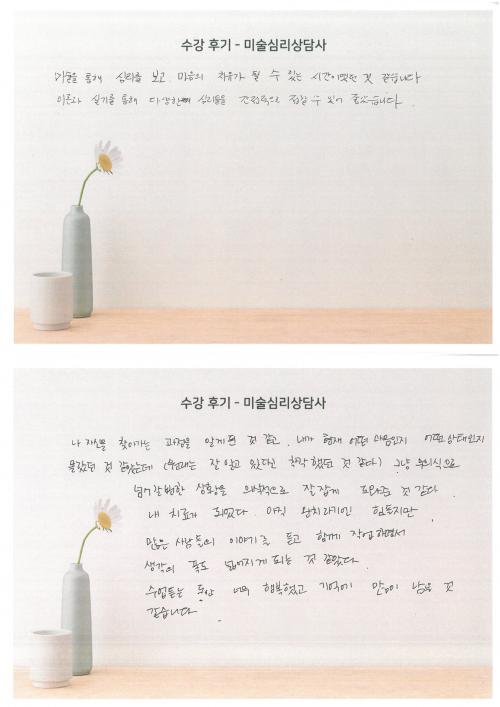 수강 후기 - 미술심리상담사
미술을 통해 심리를 보고 마음의 치유가 될 수 있는 시간이었던 것 같습니다
이론과 실기를 통해 다양한 심리들을 간접적으로 접할 수 있어 좋았습니다.
수강 후기 - 미술심리상담사
나 자신을 찾아가는 과정을 알게 된 것 같고, 내가 현재 어떤 마음인지 어떤 상태인지
몰랐던 것 같았는데 (원래는 잘 알고 있다고 착각했던 것 같다) 그냥 무의식으로
넘어갈 뻔한 상황을 의식적으로 잘 잡게 도와준 것 같다.
내 치료가 되었다. 아직 완치라기엔 힘들지만,
많은 사람들의 이야기를 듣고 함께 작업하면서
생각의 폭도 넓어지게 되는 것 같았다.
수업듣는 동안 너무 행복했고 기억에 많이 남을 것
같습니다.